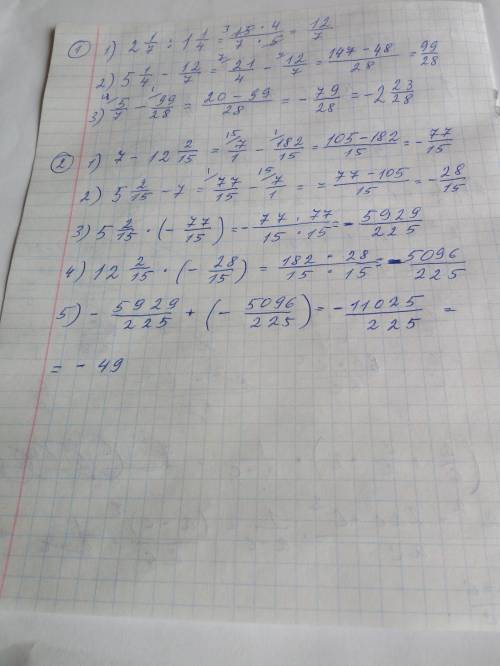 ① 1) 2 1/7 : 1 1/4 = 15 · 4 / 7 · 5 = 12/7
2) 5 1/4 - 12/7 = 21/4 - 12/7 = 147 - 48 / 28 = 99/28
3) 5/7 - 99/28 = 20 - 99 / 28 = - 79/28 = -2 23/28
② 1) 7 - 12 2/15 = 7/1 - 182/15 = 105 - 182 / 15 = - 77/15
2) 5 2/15 - 7 = 77/15 - 7/1 = = 77 - 105 / 15 = - 28/15
3) 5 2/15 · (- 77/15) = - 77 · 77 / 15 · 15 = - 5929/225
4) 12 2/15 · (- 28/15) = 182/15 · 28/15 = - 5096/225
5) - 5929/225 + (- 5096/225) = - 11025/225 =
= - 49